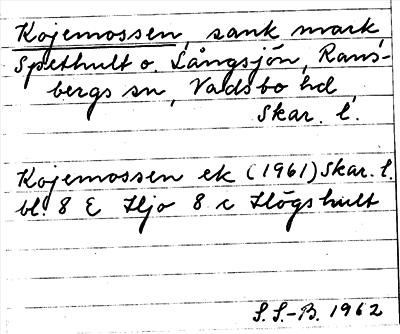 Kojemossen, sank mark
Spethult o. Långsjön, Rans-
bergs sn, Vadsbo hd,
Skar. l.
Kojemossen ek (1961) Skar. l.
bl. 8 E Hjo 8 c Högshult
S.S.-B. 1962